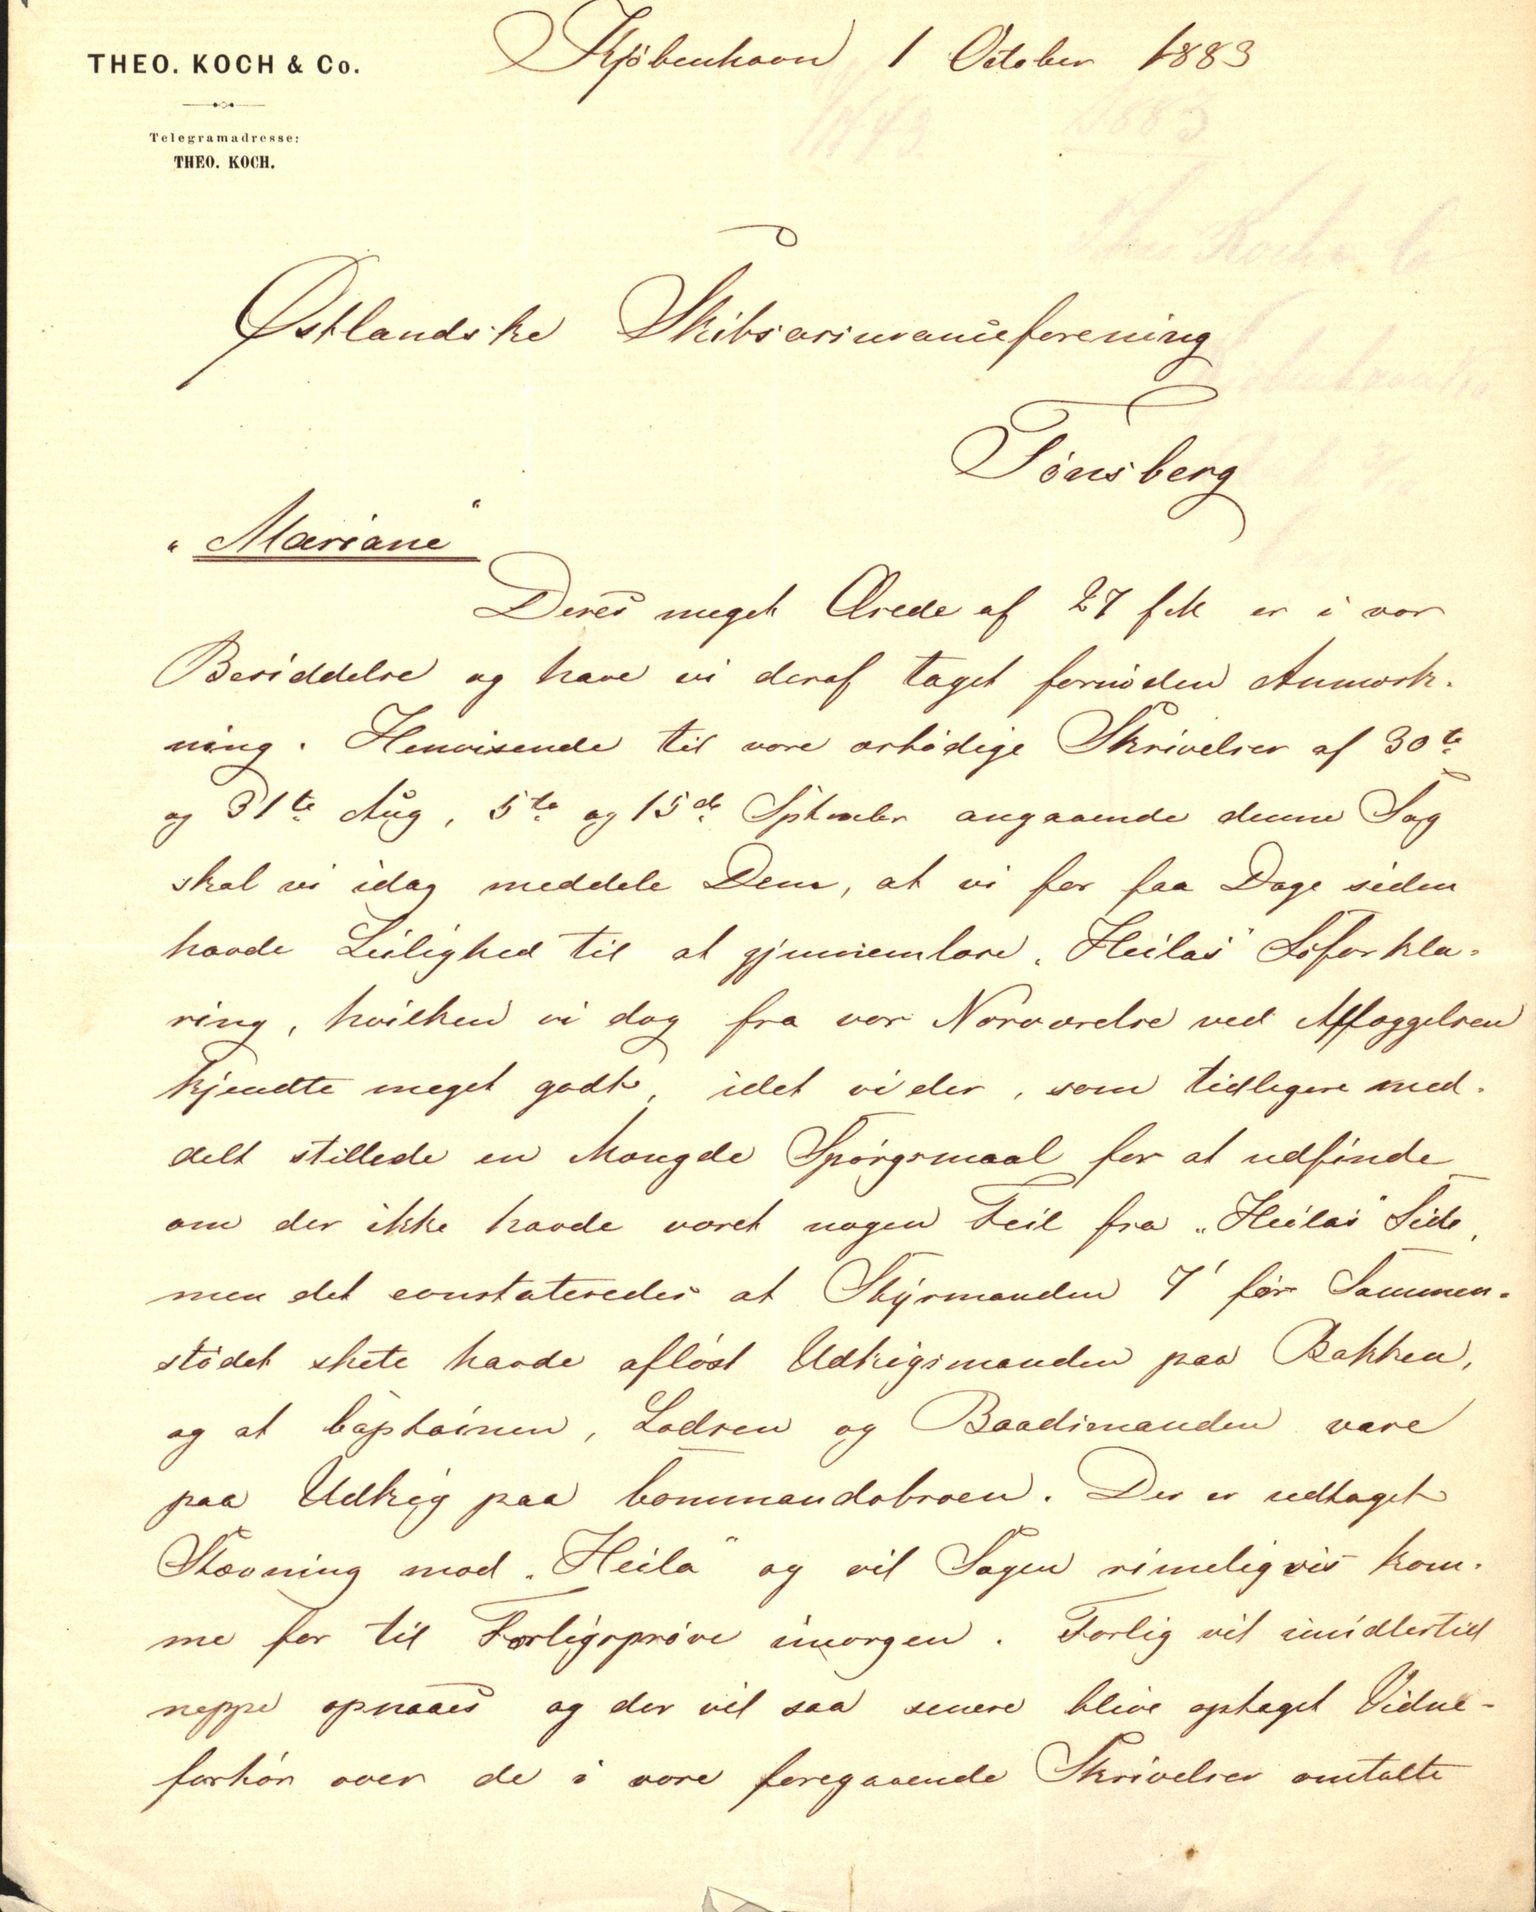 THEO. KOCH & Co.
Kjöbenhavn 1 October 1883
Telegramadresse:
THEO. KOCH.
Østlandske Skibsassuranceforening
Tönsberg
"Mariane"
Deres meget Ærede af 27 fM er i vor
Besiddelse og have vi deraf taget fornöden Anmærk-
ning. Henvisende til vore ærbödige Skrivelser af 30te
og 31te Aug, 5te og 15de Sptmbr angaaende denne Sag
skal vi idag meddele Dem, at vi for faa Dage siden
havde Leilighed til at gjennemlæse "Heilas" Söforkla-
ring, hvilken vi dog fra vor Nærværelse ved Afläggelsen
kjendte meget godt, idet vi der, som tidligere med-
delt stillede en Mængde Spörgsmaal for at udfinde
om der ikke havde været nogen Feil fra "Heilas" Side,
men det constateredes at Styrmanden 7' før Sammen-
stödet skete havde aflöst Udkigsmanden paa Bakken,
og at Captainen, Lodsen og Baadsmanden vare
paa Udkig paa Commandobroen. Der er udtaget
Stævning mod "Heila" og vil Sagen rimeligvis kom-
me for til Forligspröve imorgen. Forlig vil imidlertid
neppe opnaaes og der vil saa senere blive optaget Vidne-
forhör over de i vore foregaaende Skrivelser omtalte